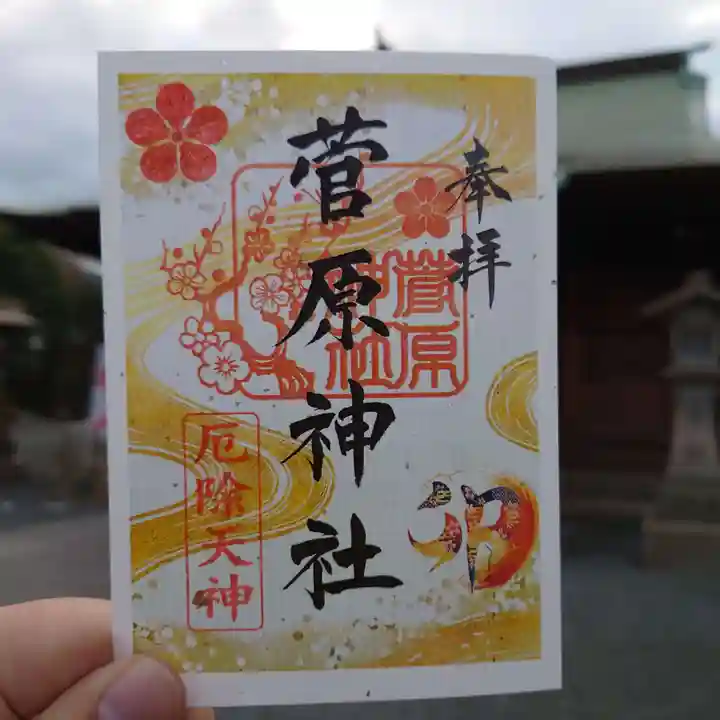 奉拝
菅原神社
菅原
神社
卯
厄除天神